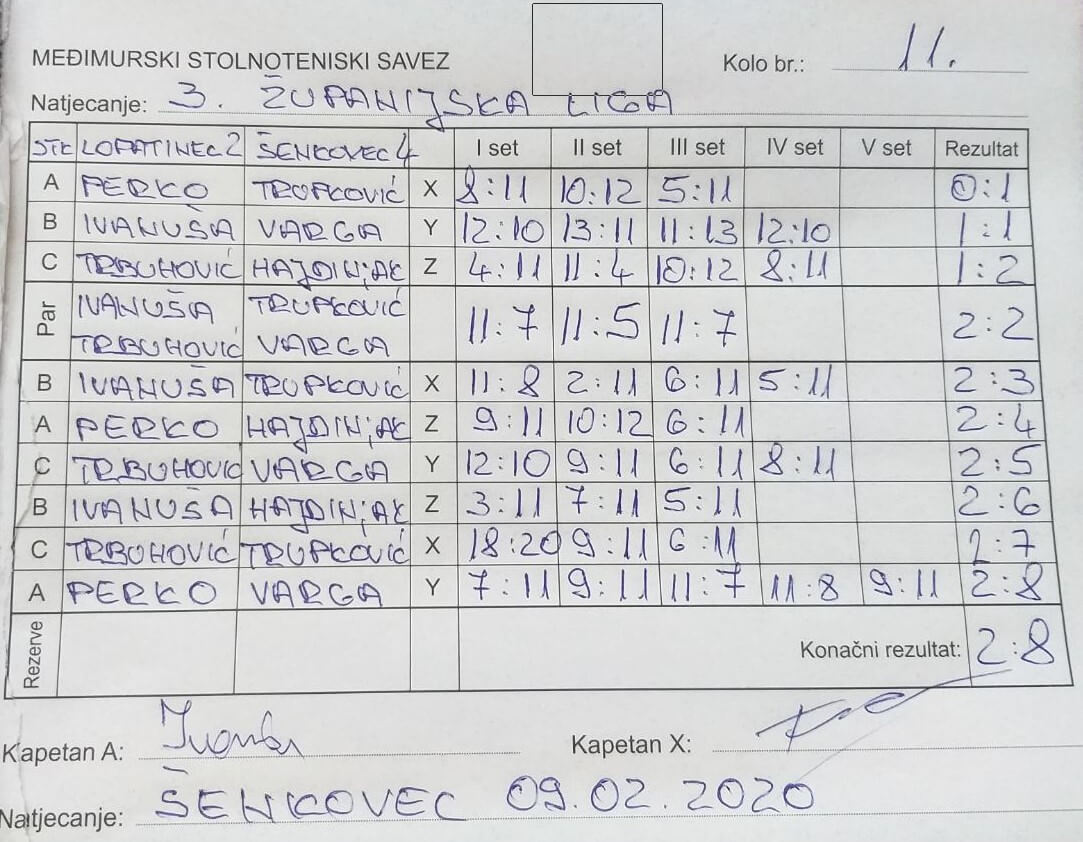 MEĐIMURSKI STOLNOTENISKI SAVEZ
Kolo br.: 11.
Natjecanje: 3. ŽUPANIJSKA LIGA
STK LOPATINEC 2 ŠENKOVEC 4 I set II set III set IV set V set Rezultat
A PERKO TRUPKOVIĆ X 8:11 10:12 5:11 0:1
B IVANUŠA VARGA Y 12:10 13:11 11:13 12:10 1:1
C TRBUHOVIĆ HAJDINJAK Z 4:11 11:4 10:12 8:11 1:2
Par IVANUŠA TRUPKOVIĆ
TRBUHOVIĆ VARGA 11:7 11:5 11:7 2:2
B IVANUŠA TRUPKOVIĆ X 11:8 2:11 6:11 5:11 2:3
A PERKO HAJDINJAK Z 9:11 10:12 6:11 2:4
C TRBUHOVIĆ VARGA Y 12:10 9:11 6:11 8:11 2:5
B IVANUŠA HAJDINJAK Z 3:11 7:11 5:11 2:6
C TRBUHOVIĆ TRUPKOVIĆ X 18:20 9:11 6:11 2:7
A PERKO VARGA Y 7:11 9:11 11:7 11:8 9:11 2:8
Rezerve Konačni rezultat: 2:8
Kapetan A: Kapetan X:
Natjecanje: ŠENKOVEC 09.02.2020